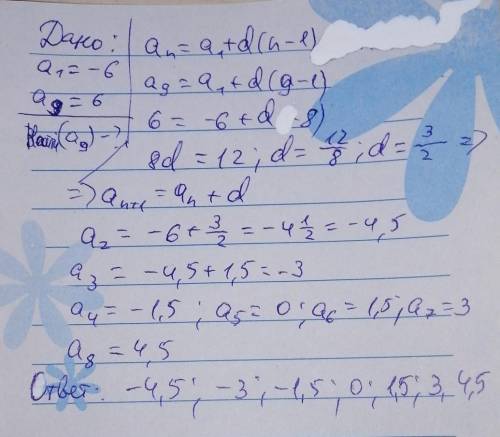 Дано:
a₁ = -6
a₉ = 6
(a₉) - ?
aₙ = a₁ + d(n-1)
a₉ = a₁ + d(9-1)
6 = -6 + d 8)
8d = 12 ; d = 12/8 ; d = 3/2 =>
=> aₙ₊₁ = aₙ + d
a₂ = -6 + 3/2 = -4 1/2 = -4,5
a₃ = -4,5 + 1,5 = -3
a₄ = -1,5 ; a₅ = 0 ; a₆ = 1,5 ; a₇ = 3
a₈ = 4,5
Ответ: -4,5 ; -3 ; -1,5 ; 0 ; 1,5 ; 3, 4,5